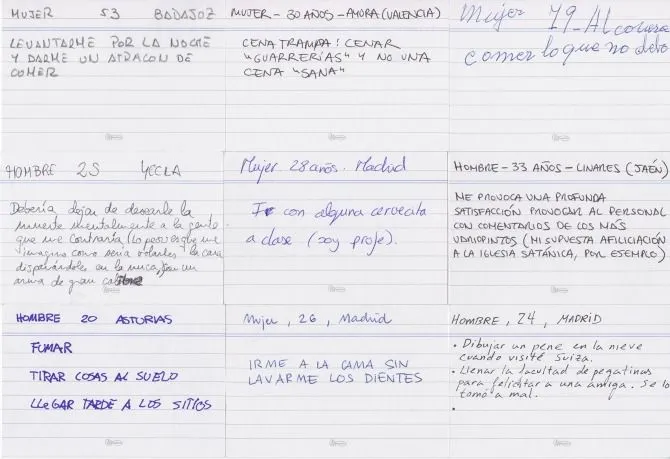 MUJER 53 BADAJOZ
LEVANTARME POR LA NOCHE
Y DARME UN ATRACON DE
COMER
MUJER - 30 AÑOS - AHORA (VALENCIA)
CENA TRAMPA: CENAR
"GUARRERÍAS" Y NO UNA
CENA "SANA"
Mujer 79 - Alcorcon
comer lo que no debo
HOMBRE 25 YECLA
Debería dejar de desearle la
muerte mentalmente a la gente
que me contraria (lo peor es que me
imagino como seria volarles la cara
disparándoles en la nuca, con un
arma de gran calibre
Mujer 28 años. Madrid
Ir con alguna cervecita
a clase (soy profe).
HOMBRE - 33 AÑOS - LINARES (JAÉN)
ME PROVOCA UNA PROFUNDA
SATISFACCIÓN PROVOCAR AL PERSONAL
CON COMENTARIOS DE LOS MÁS
VARIOPINTOS (MI SUPUESTA AFILICIACIÓN
A LA IGLESIA SATÁNICA, POR EJEMPLO)
HOMBRE 20 ASTURIAS
FUMAR
TIRAR COSAS AL SUELO
LLEGAR TARDE A LOS SITIOS
Mujer, 26, Madrid
IRME A LA CAMA SIN
LAVARME LOS DIENTES
HOMBRE, 24, MADRID
• Dibujar un pene en la nieve
cuando visité Suiza.
• Llenar la facultad de pegatinas
para felicitar a una amiga. Se lo
tomó a mal.
•